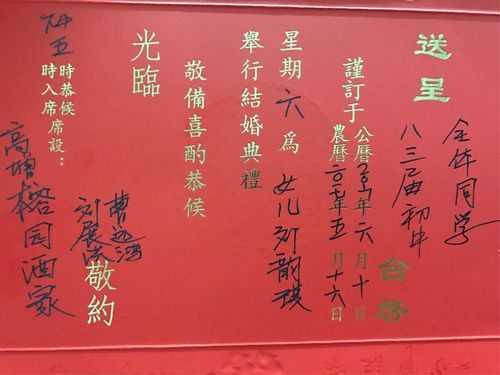 送呈
全体同学
八三届初中
台啓
謹訂于
公曆二〇一七年六月十日
農曆二〇一七年五月十六日
星期六為女儿刘韵琪
舉行結婚典禮
敬備喜酌恭候
光臨
曹
刘展
敬約
下午五時恭候
時入席席設：
高增榕园酒家